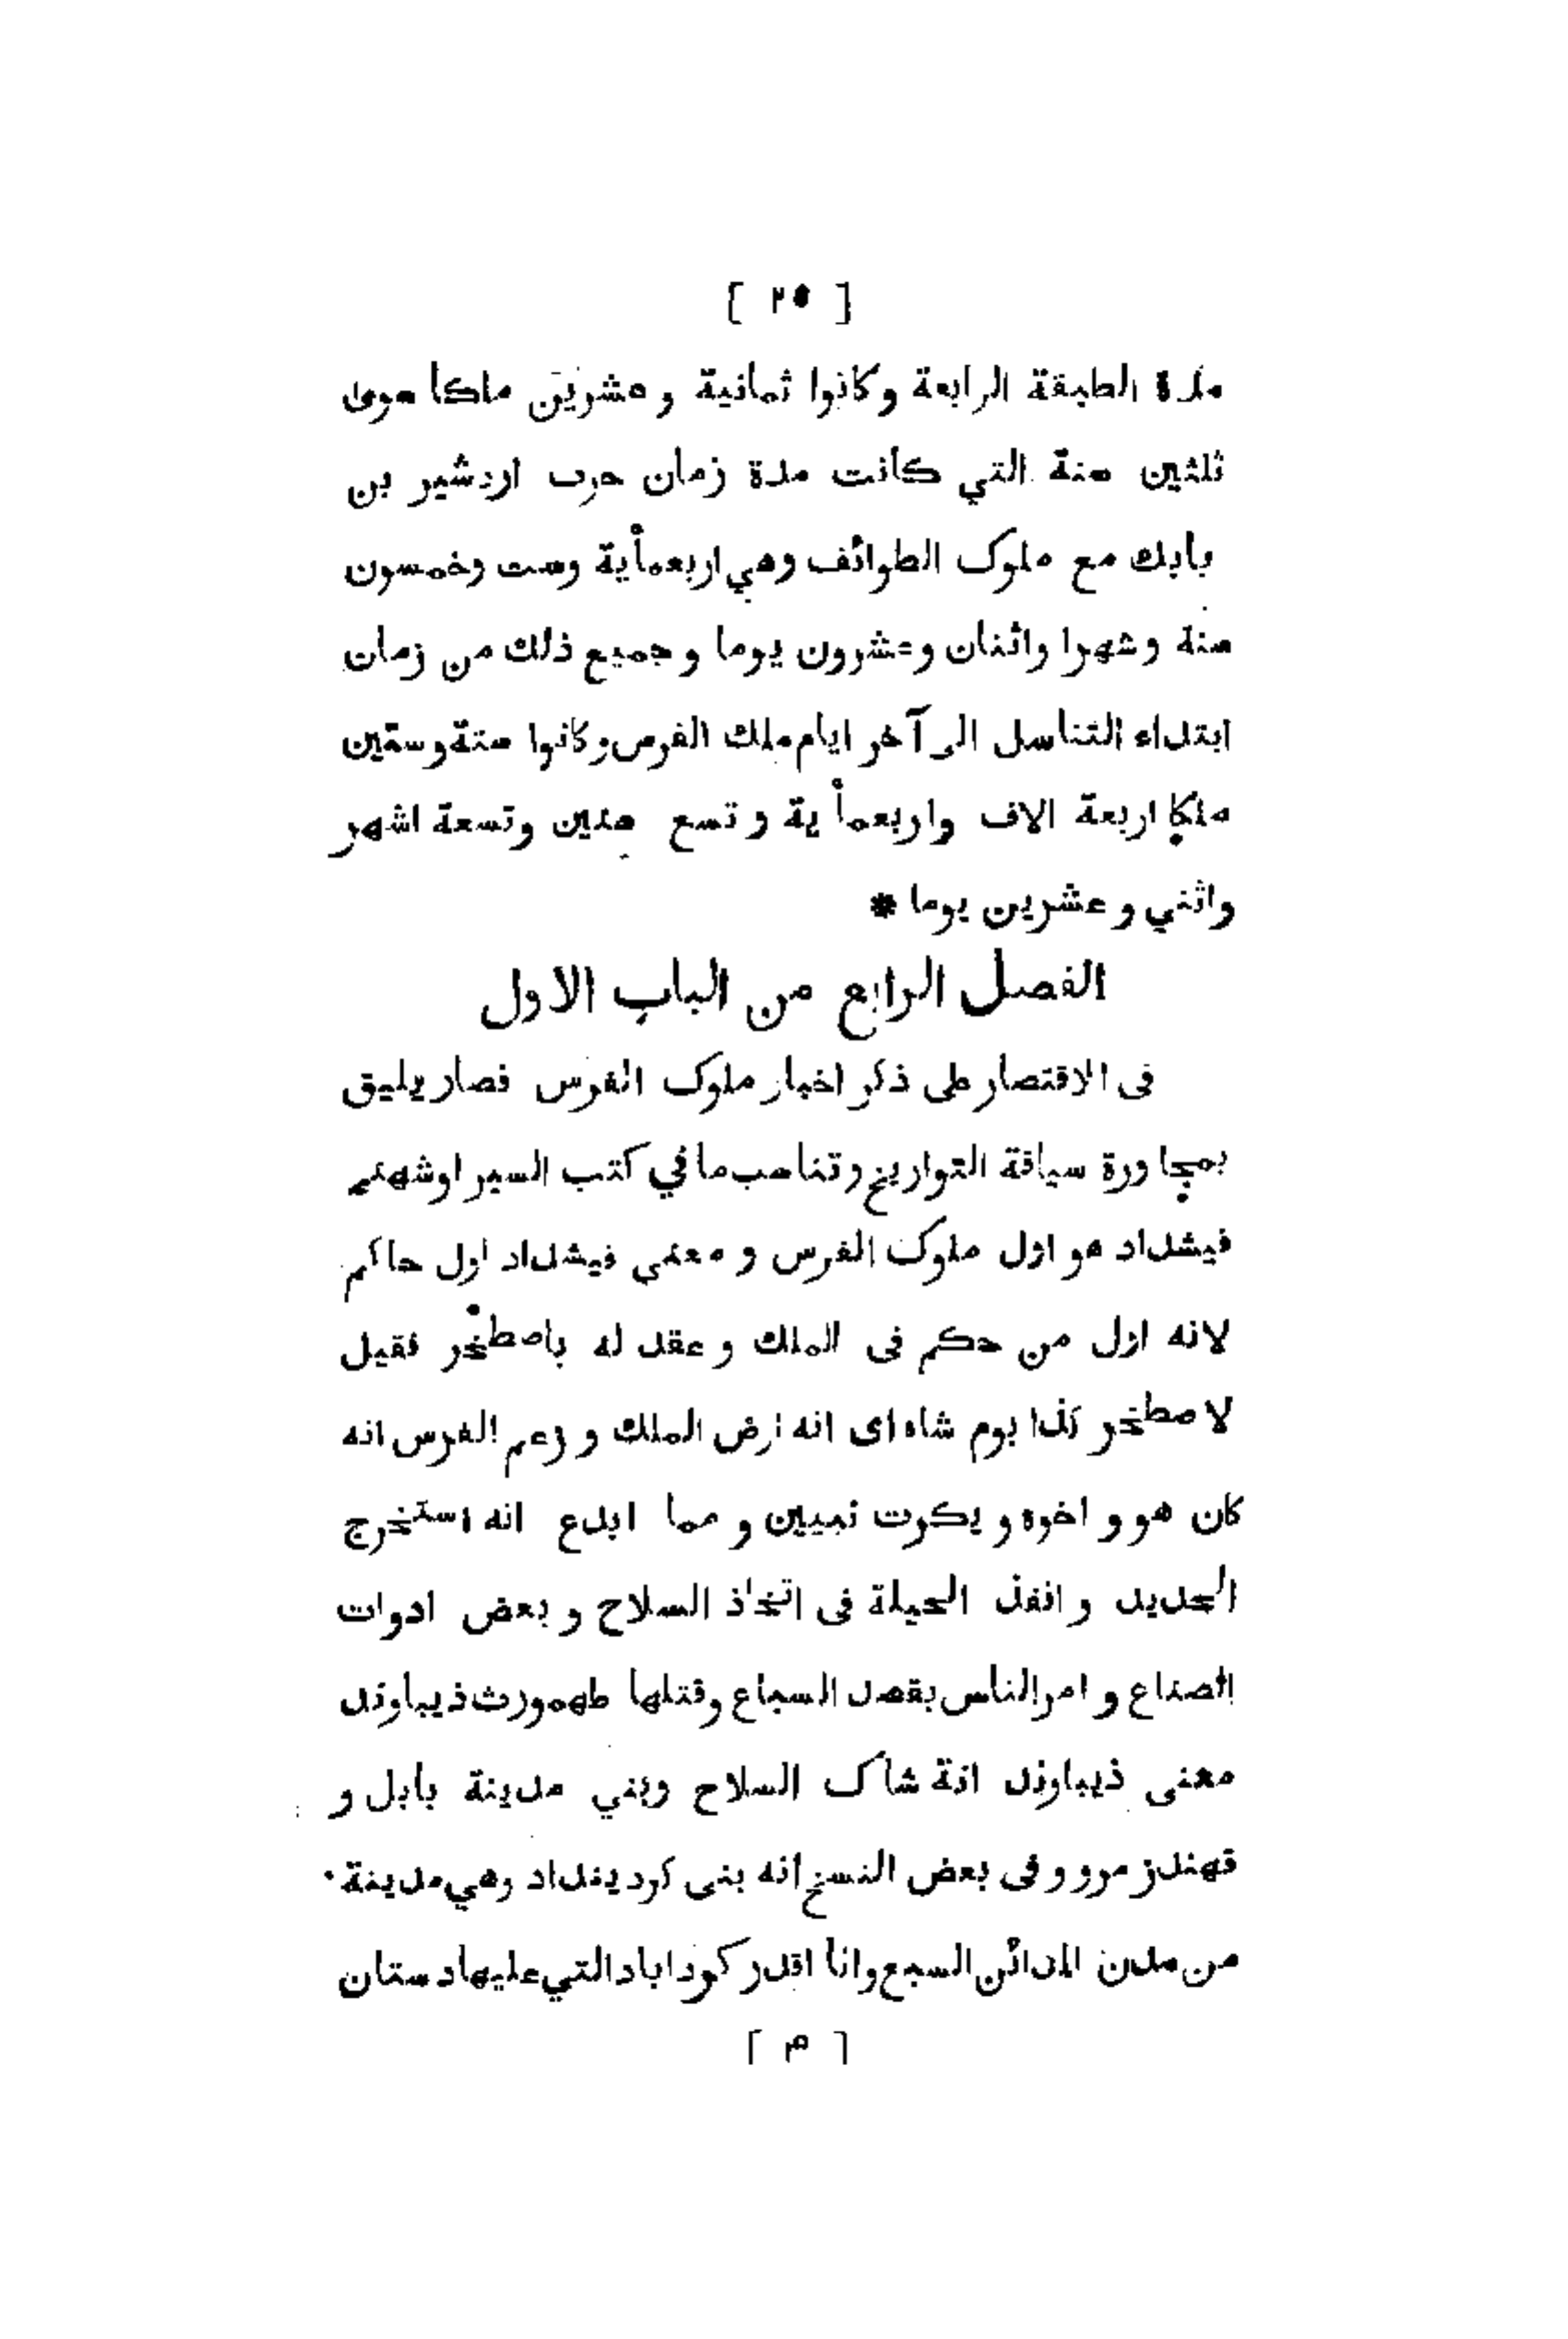 [ ٢٥ ]
مدة الطبقة الرابعة وكانوا ثمانية و عشرين ملكا سوى
ثلثين سنة التي كانت مدة زمان حرب اردشير بن
بابك مع ملوك الطوائف وهي اربعمأية وست وخمسون
سنة وشهرا واثنان وعشرون يوما وجميع ذلك من زمان
ابتداء التناسل الى آخر ايام ملك الفرس وكانوا ستة وستين
ملكا اربعة الاف واربعمأ ية و تسع سنين وتسعة اشهر
واثني و عشرين يوما *
الفصل الرابع من الباب الاول
فى الاقتصار على ذكر اخبار ملوك الفرس فصار يليق
بمجاورة سياقة التواريخ وتناسب ما في كتب السير اوشهنج
فيشداد هو اول ملوك الفرس و معنى فيشداد اول حاكم
لانه اول من حكم فى الملك و عقد له باصطخر فقيل
لاصطخر كذا بوم شاه اى انه ارض الملك و زعم الفرس انه
كان هو و اخوه و يكرت نبيين و مما ابدع انه استخرج
الحديد و انفذ الحيلة فى اتخاذ السلاح و بعض ادوات
الصناع و امر الناس بقصد السباع وقتلها طهمورث ذيباوند
معنى ذيباوند انة شاك السلاح وبني مدينة بابل و
قهندز مرو و فى بعض النسخ انه بنى كرد ينداد وهي مدينة
من مدن المدائن السبع وانا اقدر كرد اباد التي عليها دستان
[ م ]